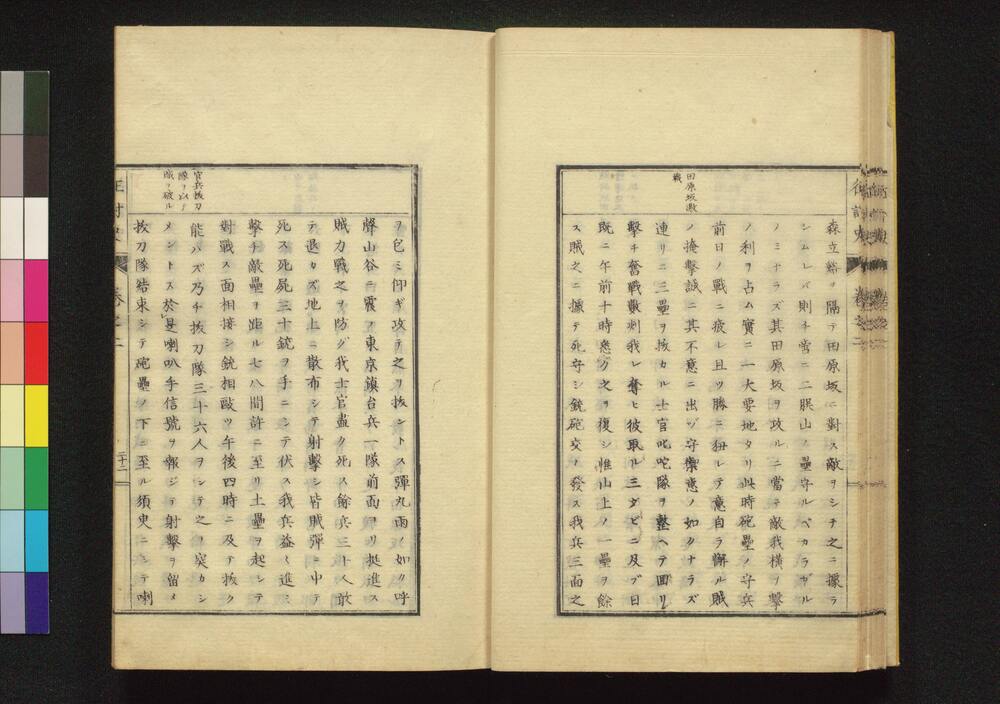 田原坂激
戦
森立谿ヲ隔テ田原坂ニ對ス敵ヲシテ之ニ據ラ
シムレバ則チ啻ニ二股山ノ壘守ルベカラザル
ノミナラズ其田原坂ヲ攻ルニ當テ敵我横ヲ擊
ノ利ヲ占ム實ニ一大要地タリ此時砲壘ノ守兵
前日ノ戰ニ疲レ且ツ勝ニ狃レテ意自ラ懈ル賊
ノ掩擊誠ニ其不意ニ出ヅ守禦意ノ如クナラズ
連リニ三壘ヲ抜カル士官叱咤隊ヲ整ヘテ回リ
擊チ奮戰數刺我レ奪ヒ彼取ル三タビニ及ブ日
既ニ午前十時悉ク之ヲ復シ惟山上ノ一壘ヲ餘
ス賊之ニ據テ死守シ銃砲交々發ス我兵三面之
征討史
卷之二
ヲ包ミ仰ギ攻テ之ヲ抜ントス彈丸雨ノ如ク呼
聲山谷ニ震フ東京鎮台兵一隊前面ヨリ挺進ス
賊力戰之ヲ防グ我士官盡ク死ス餘兵三十人敢
テ退カズ地上ニ散布シテ射擊シ皆賊彈ニ中テ
死ス死屍三十銃ヲ手ニシテ伏ス我兵益々進ミ
擊チ敵壘ヲ距ル七八間許ニ至リ土壘ヲ起シテ
對戰ス面相接シ銃相毆ツ午後四時ニ及テ抜ク
官兵抜刀
隊ヲ以テ
賊ヲ破ル
能ハズ乃チ抜刀隊三十六人ヲシテ之ヲ突カシ
メントス於是喇叭手信號ヲ報ジテ射擊ヲ留メ
抜刀隊結束シテ砲壘ノ下ニ至ル須臾ニシテ喇
卷之二
三十二